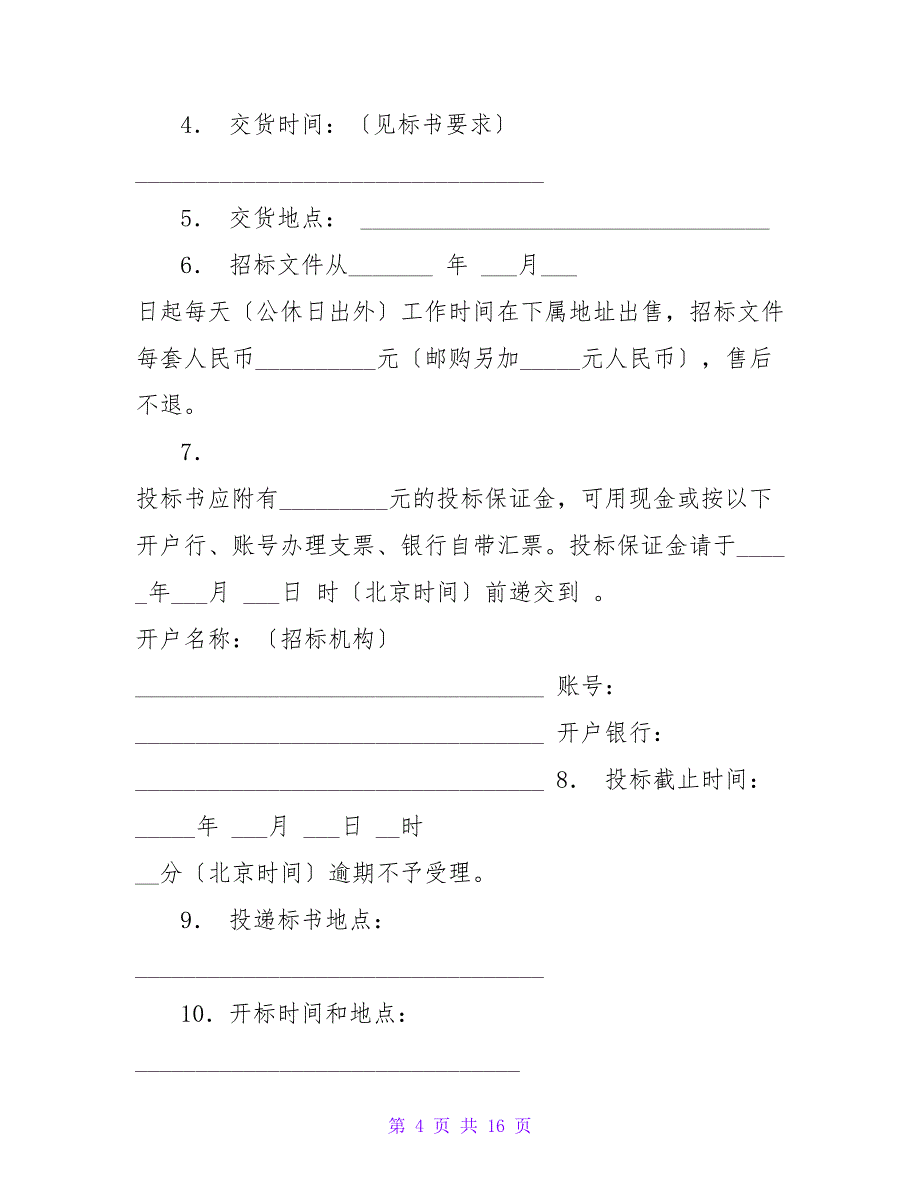 4． 交货时间：〔见标书要求〕
__________________________________
5． 交货地点： __________________________________
6． 招标文件从_______ 年 ___月___
日起每天〔公休日出外〕工作时间在下属地址出售，招标文件
每套人民币__________元〔邮购另加_____元人民币〕，售后
不退。
7．
投标书应附有_________元的投标保证金，可用现金或按以下
开户行、账号办理支票、银行自带汇票。投标保证金请于____
_年___月 ___日 时〔北京时间〕前递交到 。
开户名称：〔招标机构〕
__________________________________ 账号：
__________________________________ 开户银行：
__________________________________ 8． 投标截止时间：
_____年 ___月 ___日 __时
__分〔北京时间〕逾期不予受理。
9． 投递标书地点：
__________________________________
10．开标时间和地点：
________________________________
第 4 页 共 16 页